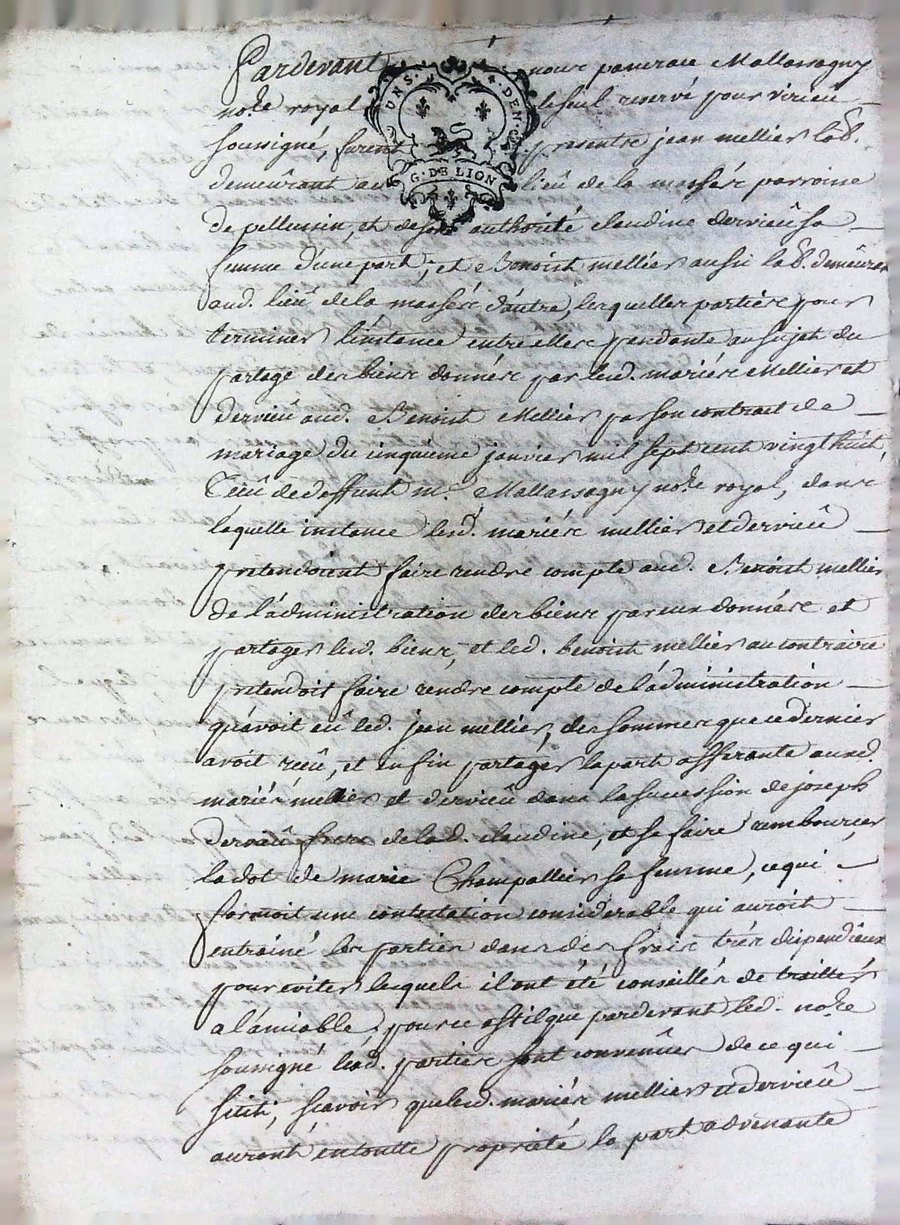 Pardevant nous pancrace Mallassagny
no.re royal le seul reservé pour virieu
soussigné, furent presents jean mellier lab.
demeurant au lieû de la massas parroisse
de pellussin, et de son authorité claudine dervieû sa
femme d'une part, et Benoist mellier aussi lab. demeurant
aud. lieû de la massas d'autre, lesquelles parties pour
terminer l'instance entre elles pendante au sujet du
partage des biens donnés par lesd. mariés Mellier et
dervieû aud. Benoist Mellier par son contract de
mariage du cinquieme janvier mil sept cent vingt huit,
reçû de deffunt m.e Mallassagny no.re royal, dans
laquelle instance lesd. mariés mellier et dervieû
pretendoient faire rendre compte aud. Benoist mellier
de l'administration des biens par eux donnés et
partager lesd. biens, et led. benoist mellier au contraire
pretendoit faire rendre compte de l'administration
qu'avoit eû led. jean mellier, des sommes que ce dernier
avoit reçû, et enfin partager la part afferante auxd.
mariés mellier et dervieû dans la succession de joseph
dervieû frere de lad. claudine, et se faire rembourcer
la dot de marie Champallier sa femme, ce qui
formoit une contestation considerable qui auroit
entrainé les parties dans des frais trés dispendieux
pour eviter lesquels il ont été conseillés de traitter
a l'amiable, pour ce est il que pardevant led. no.re
soussigné lesd. parties sont convenûes de ce qui
suit, sçavoir que lesd. mariés mellier et dervieû
auront en toutte proprieté la part advenante
G. DE LION
UNS. DEN.